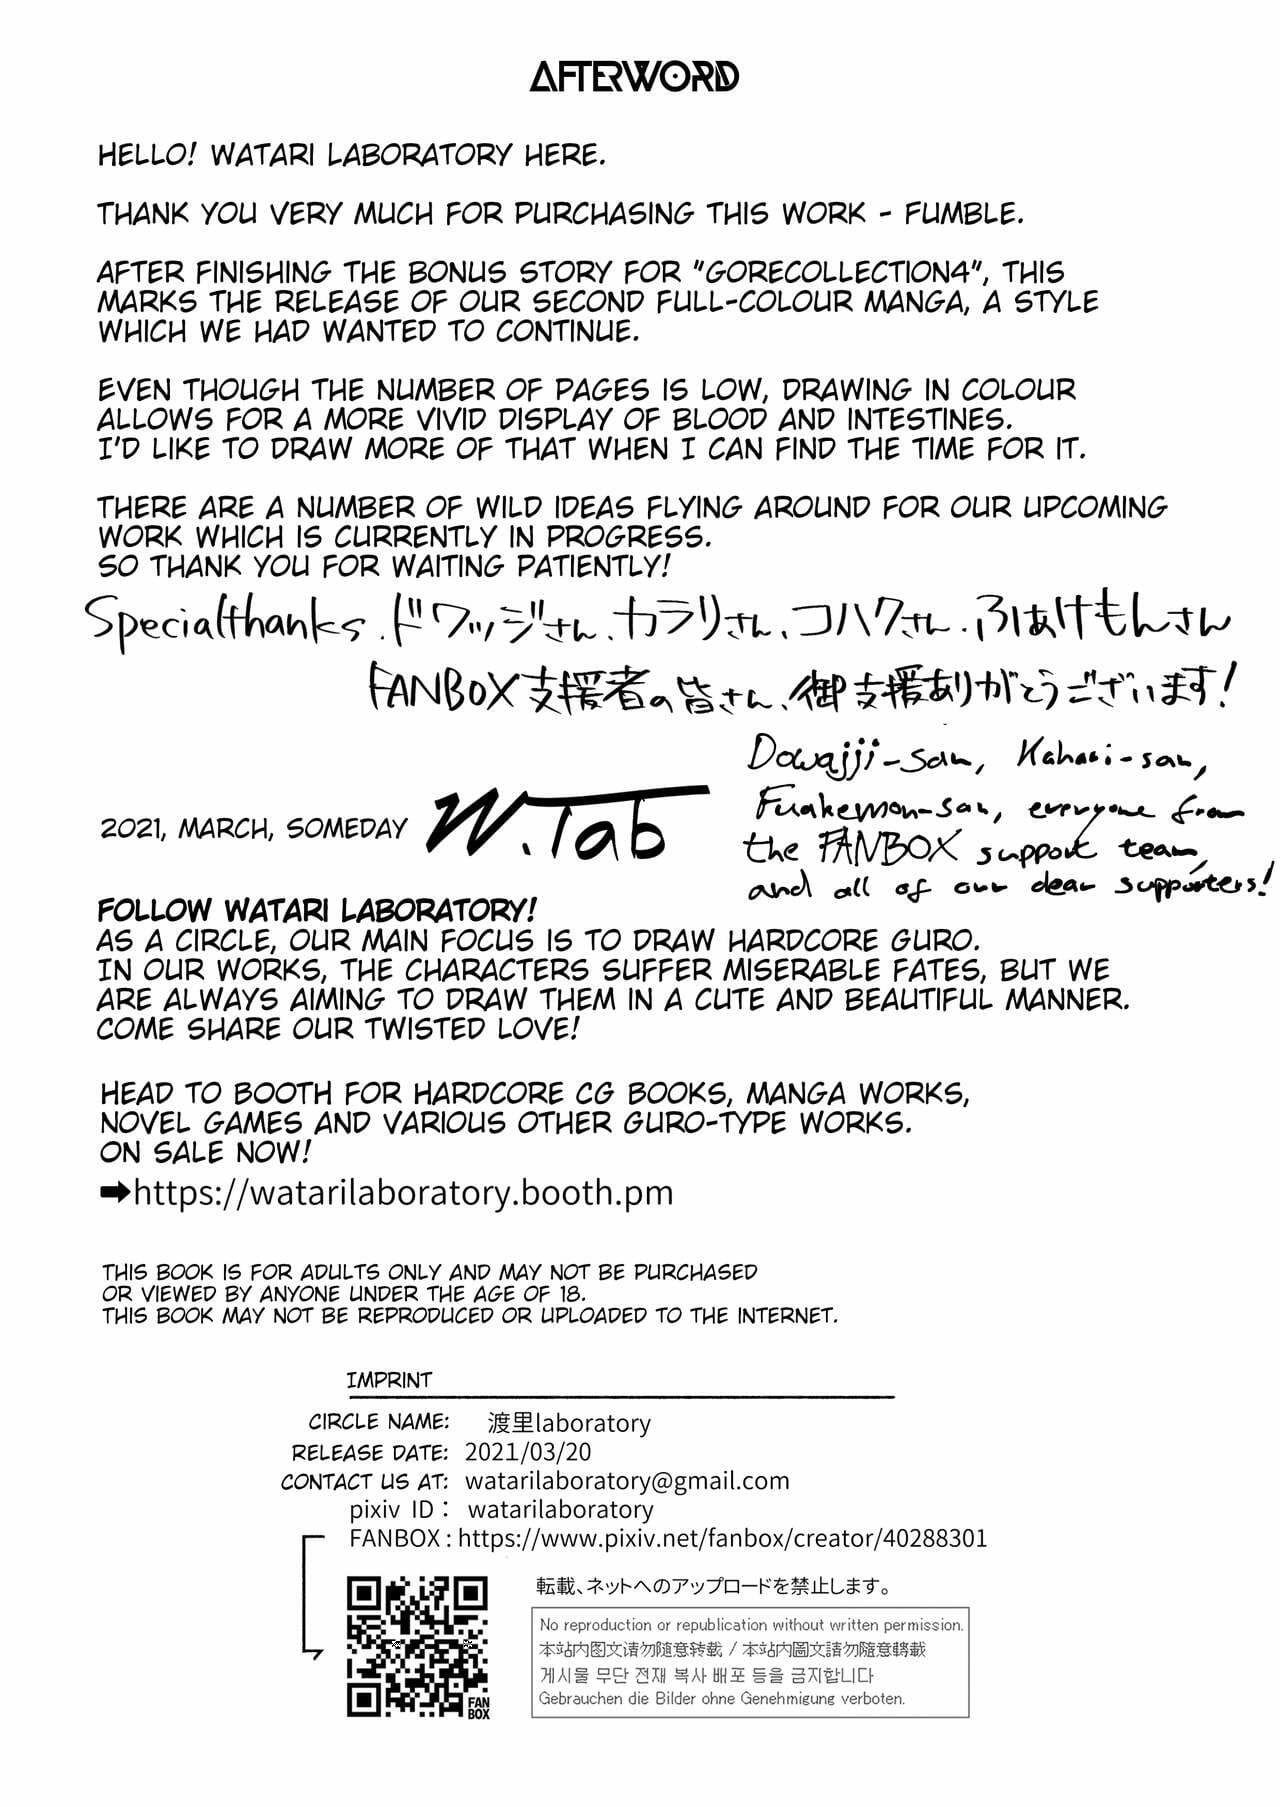 AFTERWORD
HELLO! WATARI LABORATORY HERE.
THANK YOU VERY MUCH FOR PURCHASING THIS WORK - FUMBLE.
AFTER FINISHING THE BONUS STORY FOR "GORECOLLECTION4", THIS
MARKS THE RELEASE OF OUR SECOND FULL-COLOUR MANGA, A STYLE
WHICH WE HAD WANTED TO CONTINUE.
EVEN THOUGH THE NUMBER OF PAGES IS LOW, DRAWING IN COLOUR
ALLOWS FOR A MORE VIVID DISPLAY OF BLOOD AND INTESTINES.
I'D LIKE TO DRAW MORE OF THAT WHEN I CAN FIND THE TIME FOR IT.
THERE ARE A NUMBER OF WILD IDEAS FLYING AROUND FOR OUR UPCOMING
WORK WHICH IS CURRENTLY IN PROGRESS.
SO THANK YOU FOR WAITING PATIENTLY!
Specialthanks.ドワッジさん、カラリさん、コハクさん.ふあけもんさん
FANBOX支援者の皆さん、御支援ありがとうございます!
Dowajji-san, Kahari-san,
Fuakemon-san, everyone from
the FANBOX support team,
and all of our dear supporters!
2021, MARCH, SOMEDAY W.Tab
FOLLOW WATARI LABORATORY!
AS A CIRCLE, OUR MAIN FOCUS IS TO DRAW HARDCORE GURO.
IN OUR WORKS, THE CHARACTERS SUFFER MISERABLE FATES, BUT WE
ARE ALWAYS AIMING TO DRAW THEM IN A CUTE AND BEAUTIFUL MANNER.
COME SHARE OUR TWISTED LOVE!
HEAD TO BOOTH FOR HARDCORE CG BOOKS, MANGA WORKS,
NOVEL GAMES AND VARIOUS OTHER GURO-TYPE WORKS.
ON SALE NOW!
➡https://watarilaboratory.booth.pm
THIS BOOK IS FOR ADULTS ONLY AND MAY NOT BE PURCHASED
OR VIEWED BY ANYONE UNDER THE AGE OF 18.
THIS BOOK MAY NOT BE REPRODUCED OR UPLOADED TO THE INTERNET.
IMPRINT
CIRCLE NAME: 渡里laboratory
RELEASE DATE: 2021/03/20
CONTACT US AT: watarilaboratory@gmail.com
pixiv ID： watarilaboratory
FANBOX : https://www.pixiv.net/fanbox/creator/40288301
FAN
BOX
転載、ネットへのアップロードを禁止します。
No reproduction or republication without written permission.
本站内图文请勿随意转载 / 本站内圖文請勿隨意轉載
게시물 무단 전재 복사 배포 등을 금지합니다
Gebrauchen die Bilder ohne Genehmigung verboten.